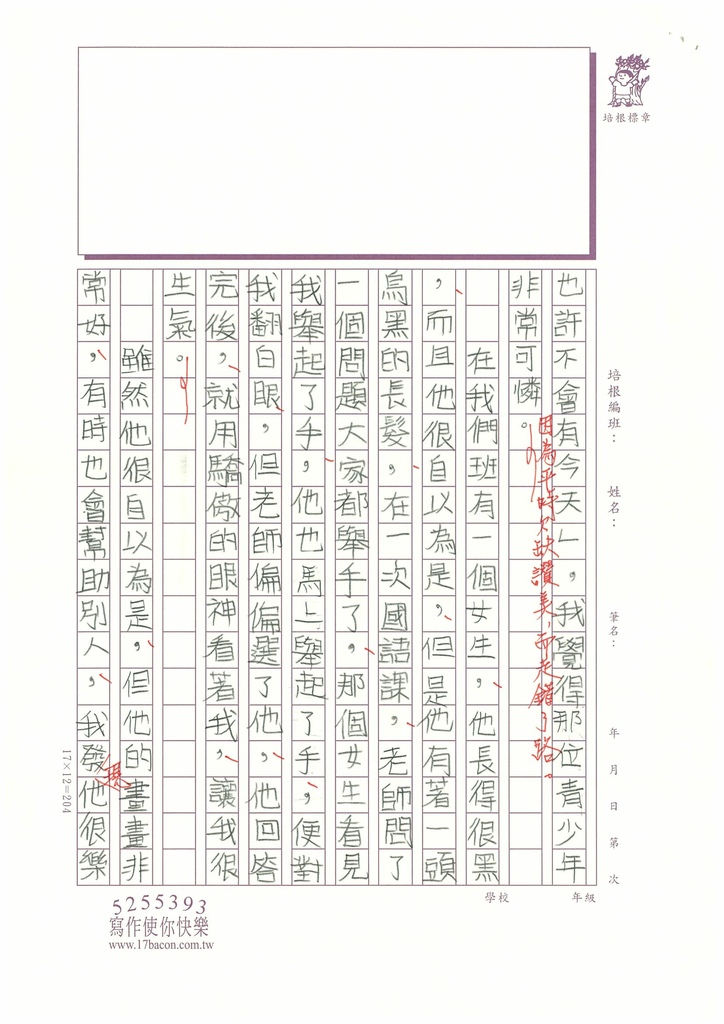 培根標章
培根編班：
姓名：
筆名：
年 月 日 第 次
學校
年級
也許不會有今天」，我覺得那位青少年
非常可憐。
因為平時欠缺讚美，而走錯了路。
在我們班有一個女生，他長得很黑
，而且他很自以為是，但是他有著一頭
烏黑的長髮，在一次國語課，老師問了
一個問題大家都舉手了，那個女生看見
我舉起了手，他也馬上舉起了手，便對
我翻白眼，但老師偏偏選了他，他回答
完後，就用驕傲的眼神看著我，讓我很
生氣。
雖然他很自以為是，但他的畫畫非
常好，有時也會幫助別人，我發他很樂
17×12=204
5255393
寫作使你快樂
www.17bacon.com.tw